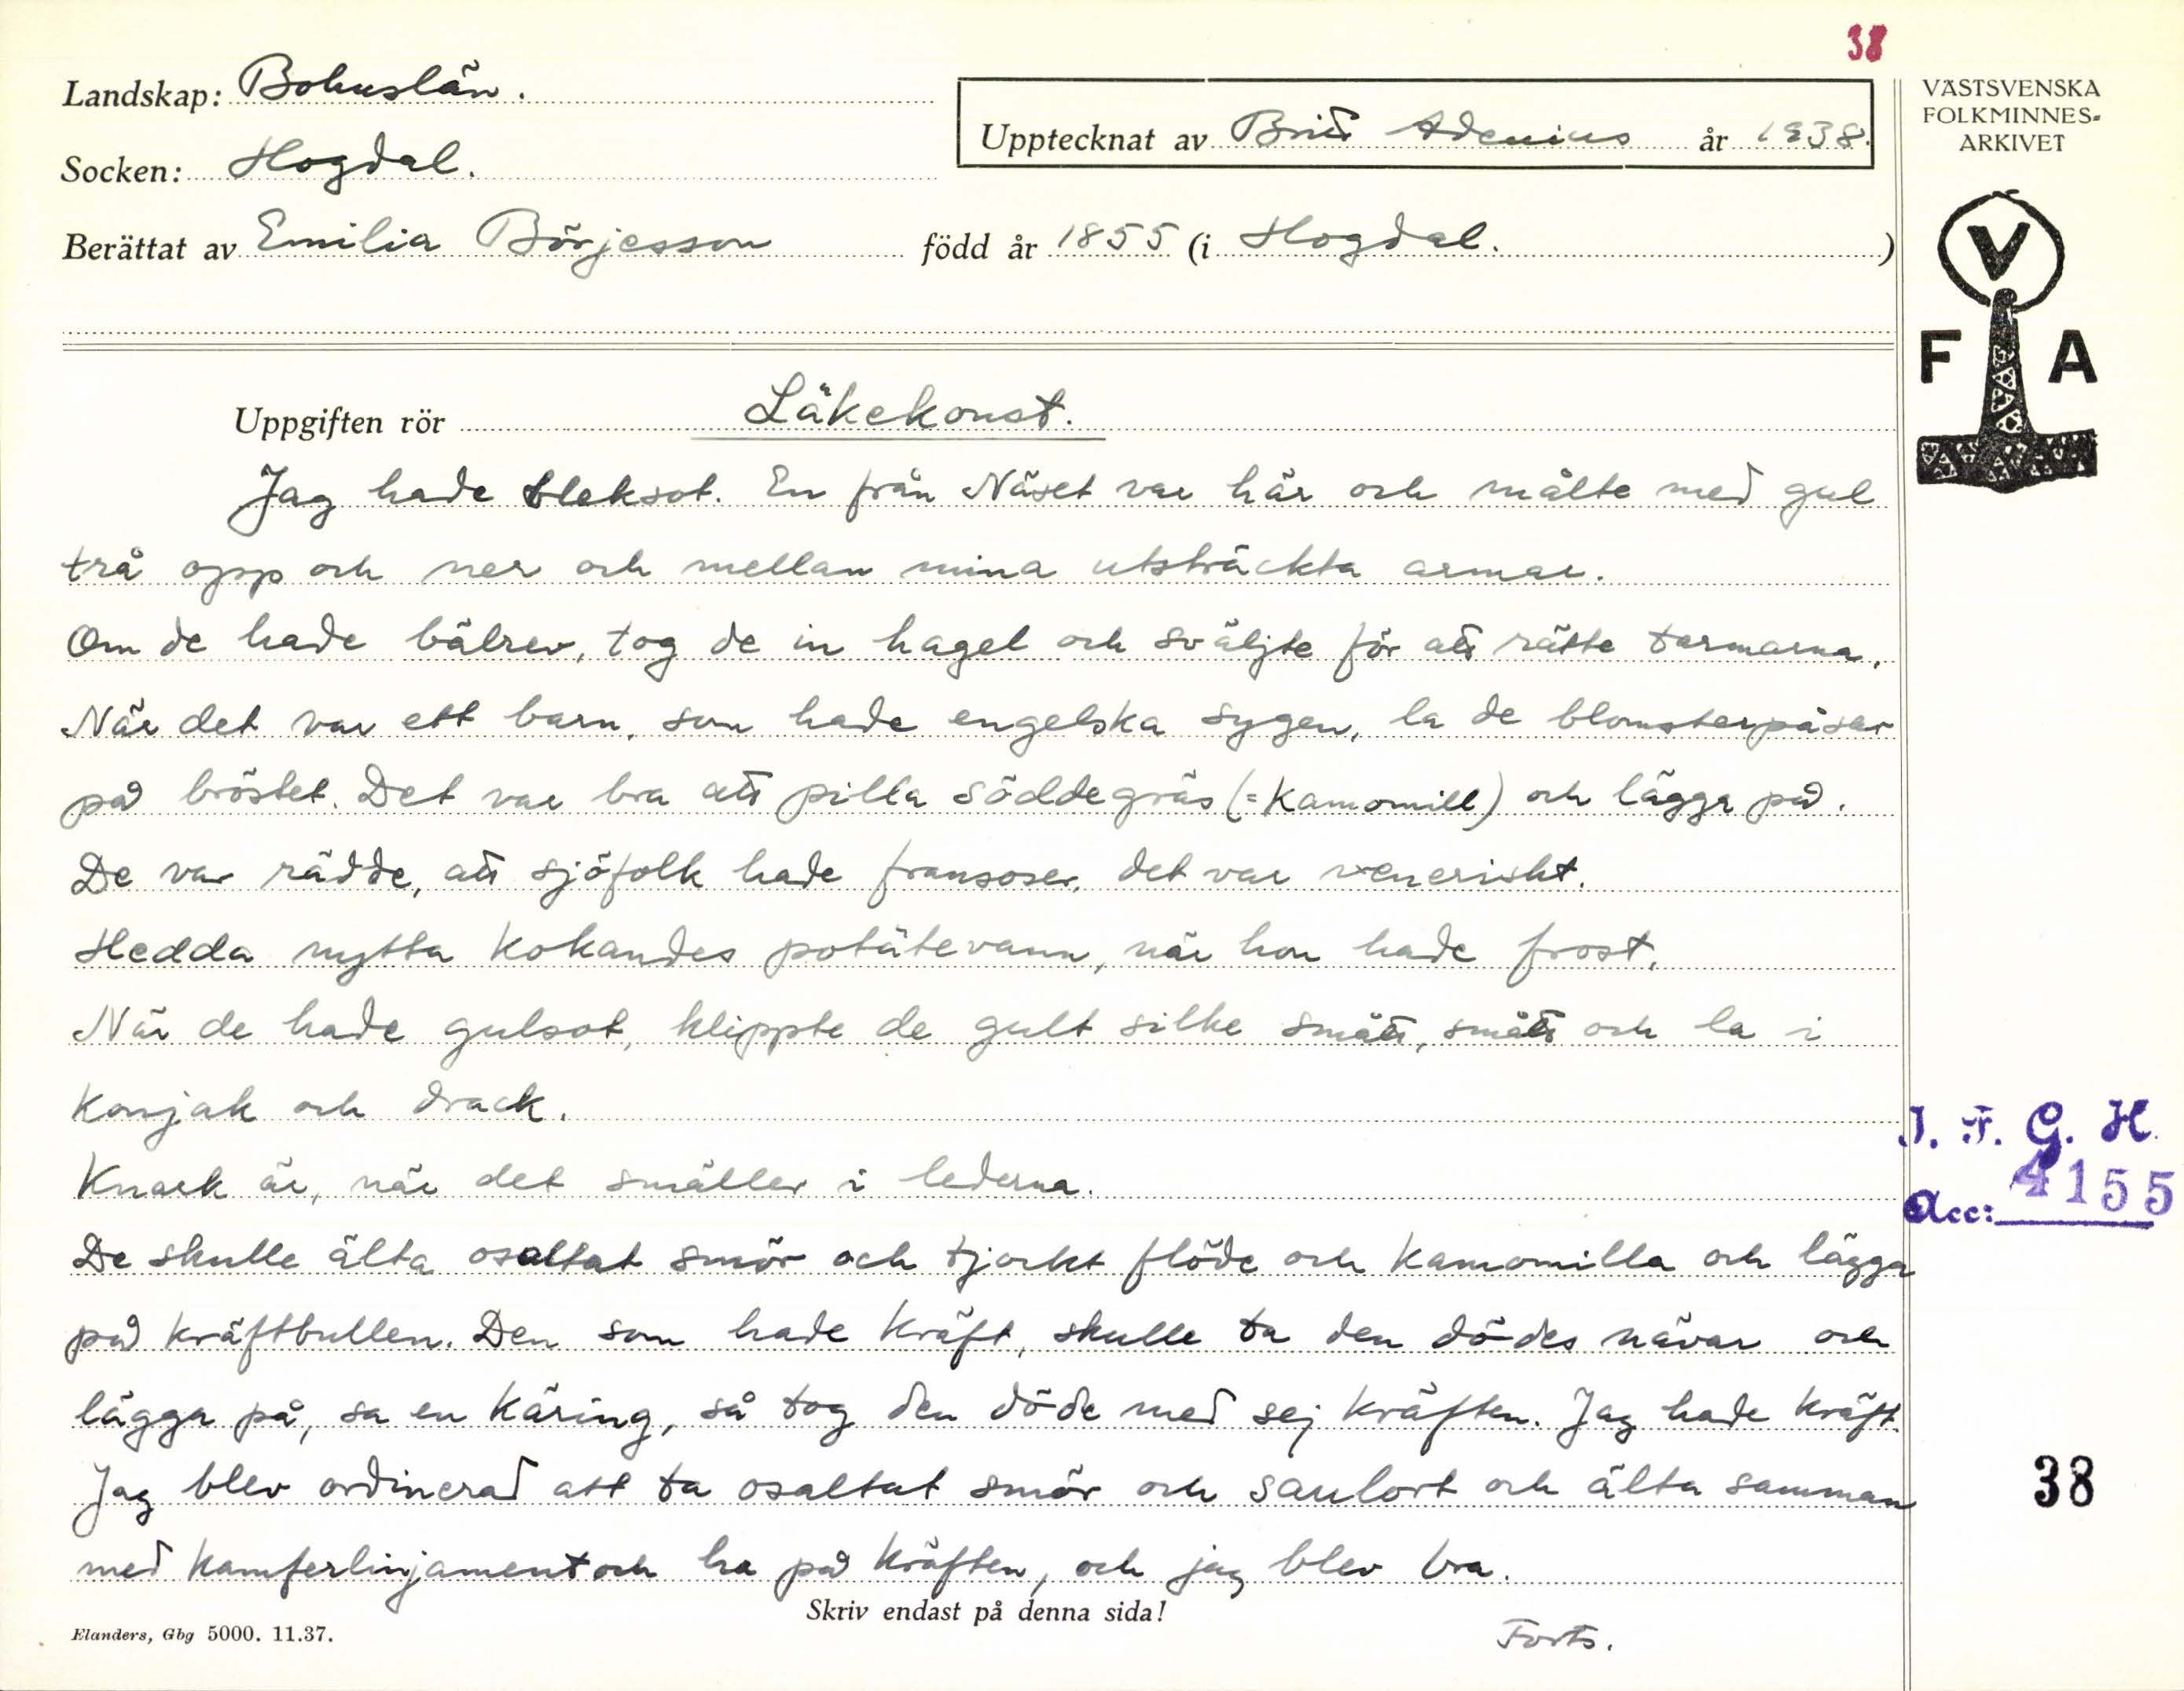 38
Landskap: Bohuslän.
Upptecknat av Britt Adenius år 1938.
Socken: Hogdal.
Berättat av Emilia Börjesson född år 1855 (i Hogdal. )
VÄSTSVENSKA
FOLKMINNES-
ARKIVET
V
F A
Uppgiften rör Läkekonst.
Jag hade bleksot. En från Näset var här och mälte med gul
trå opp och ner och mellan mina utsträckta armar.
Om de hade bälrev, tog de in hagel och sväljte för att rätte tarmarna.
När det var ett barn, som hade engelska sygen, la de blomsterpåsar
på bröstet. Det var bra att pilla söddegräs (=Kamomill) och lägga på.
De var rädde, att sjöfolk hade fransoser, det var veneriskt.
Hedda nytta kokandes potätevann, när hon hade frost.
När de hade gulsot, klippte de gult silke smått, smått och la i
Konjak och drack.
Knark är, när det smäller i lederna.
De skulle älta osaltat smör och tjockt flöde och Kamomilla och lägga
på kräftbullen. Den som hade kräft, skulle ta den dödes nävar och
lägga på, sa en käring, så tog den döde med sej kräften. Jag hade kräft.
Jag blev ordinerad att ta osaltat smör och saulort och älta samman
med kamferlinjament och ha på kräften, och jag blev bra.
I. F. G. H.
Acc: 4155
38
Skriv endast på denna sida!
Elanders, Gbg 5000. 11.37.
Forts.